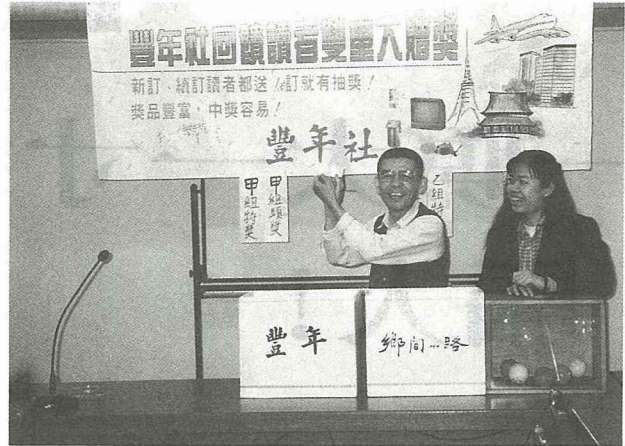 豐年社回饋讀者雙重大贈獎
新訂、續訂讀者都送!訂就有抽獎!
獎品豐富,中獎容易!
豐年社
甲組頭獎
甲組特獎
乙組特
豐年
鄉間小路